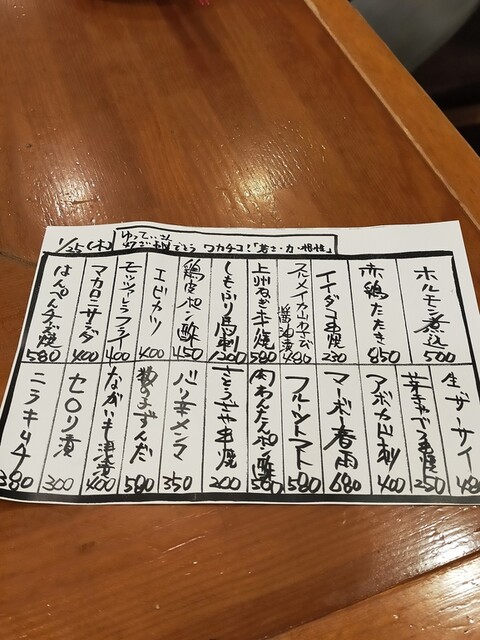 1/25(木)
ゆってぃさん
ご結婚おめでとう ワカチコ!「若さ・力・根性」
ホルモン煮込 500
赤鶏たたき 850
イイダコ串焼 230
スルメイカ肝わさび醤油漬 480
上州ねぎ串焼 580
しもふり馬刺 1200
鶏皮ポン酢 450
エビカツ 400
モッツァレラフライ 400
マカロニサラダ 400
はんぺんチーズ焼 580
生ザーサイ 480
芽キャベツ串焼 250
アボカド刺 400
マーボー春雨 680
フルーツトマト 580
肉わんたんポン酢 580
さとうさや串焼 200
バリ辛メンマ 350
数の子ずんだ 580
ながいも浅漬 400
セロリ漬 300
ニラキムチ 380